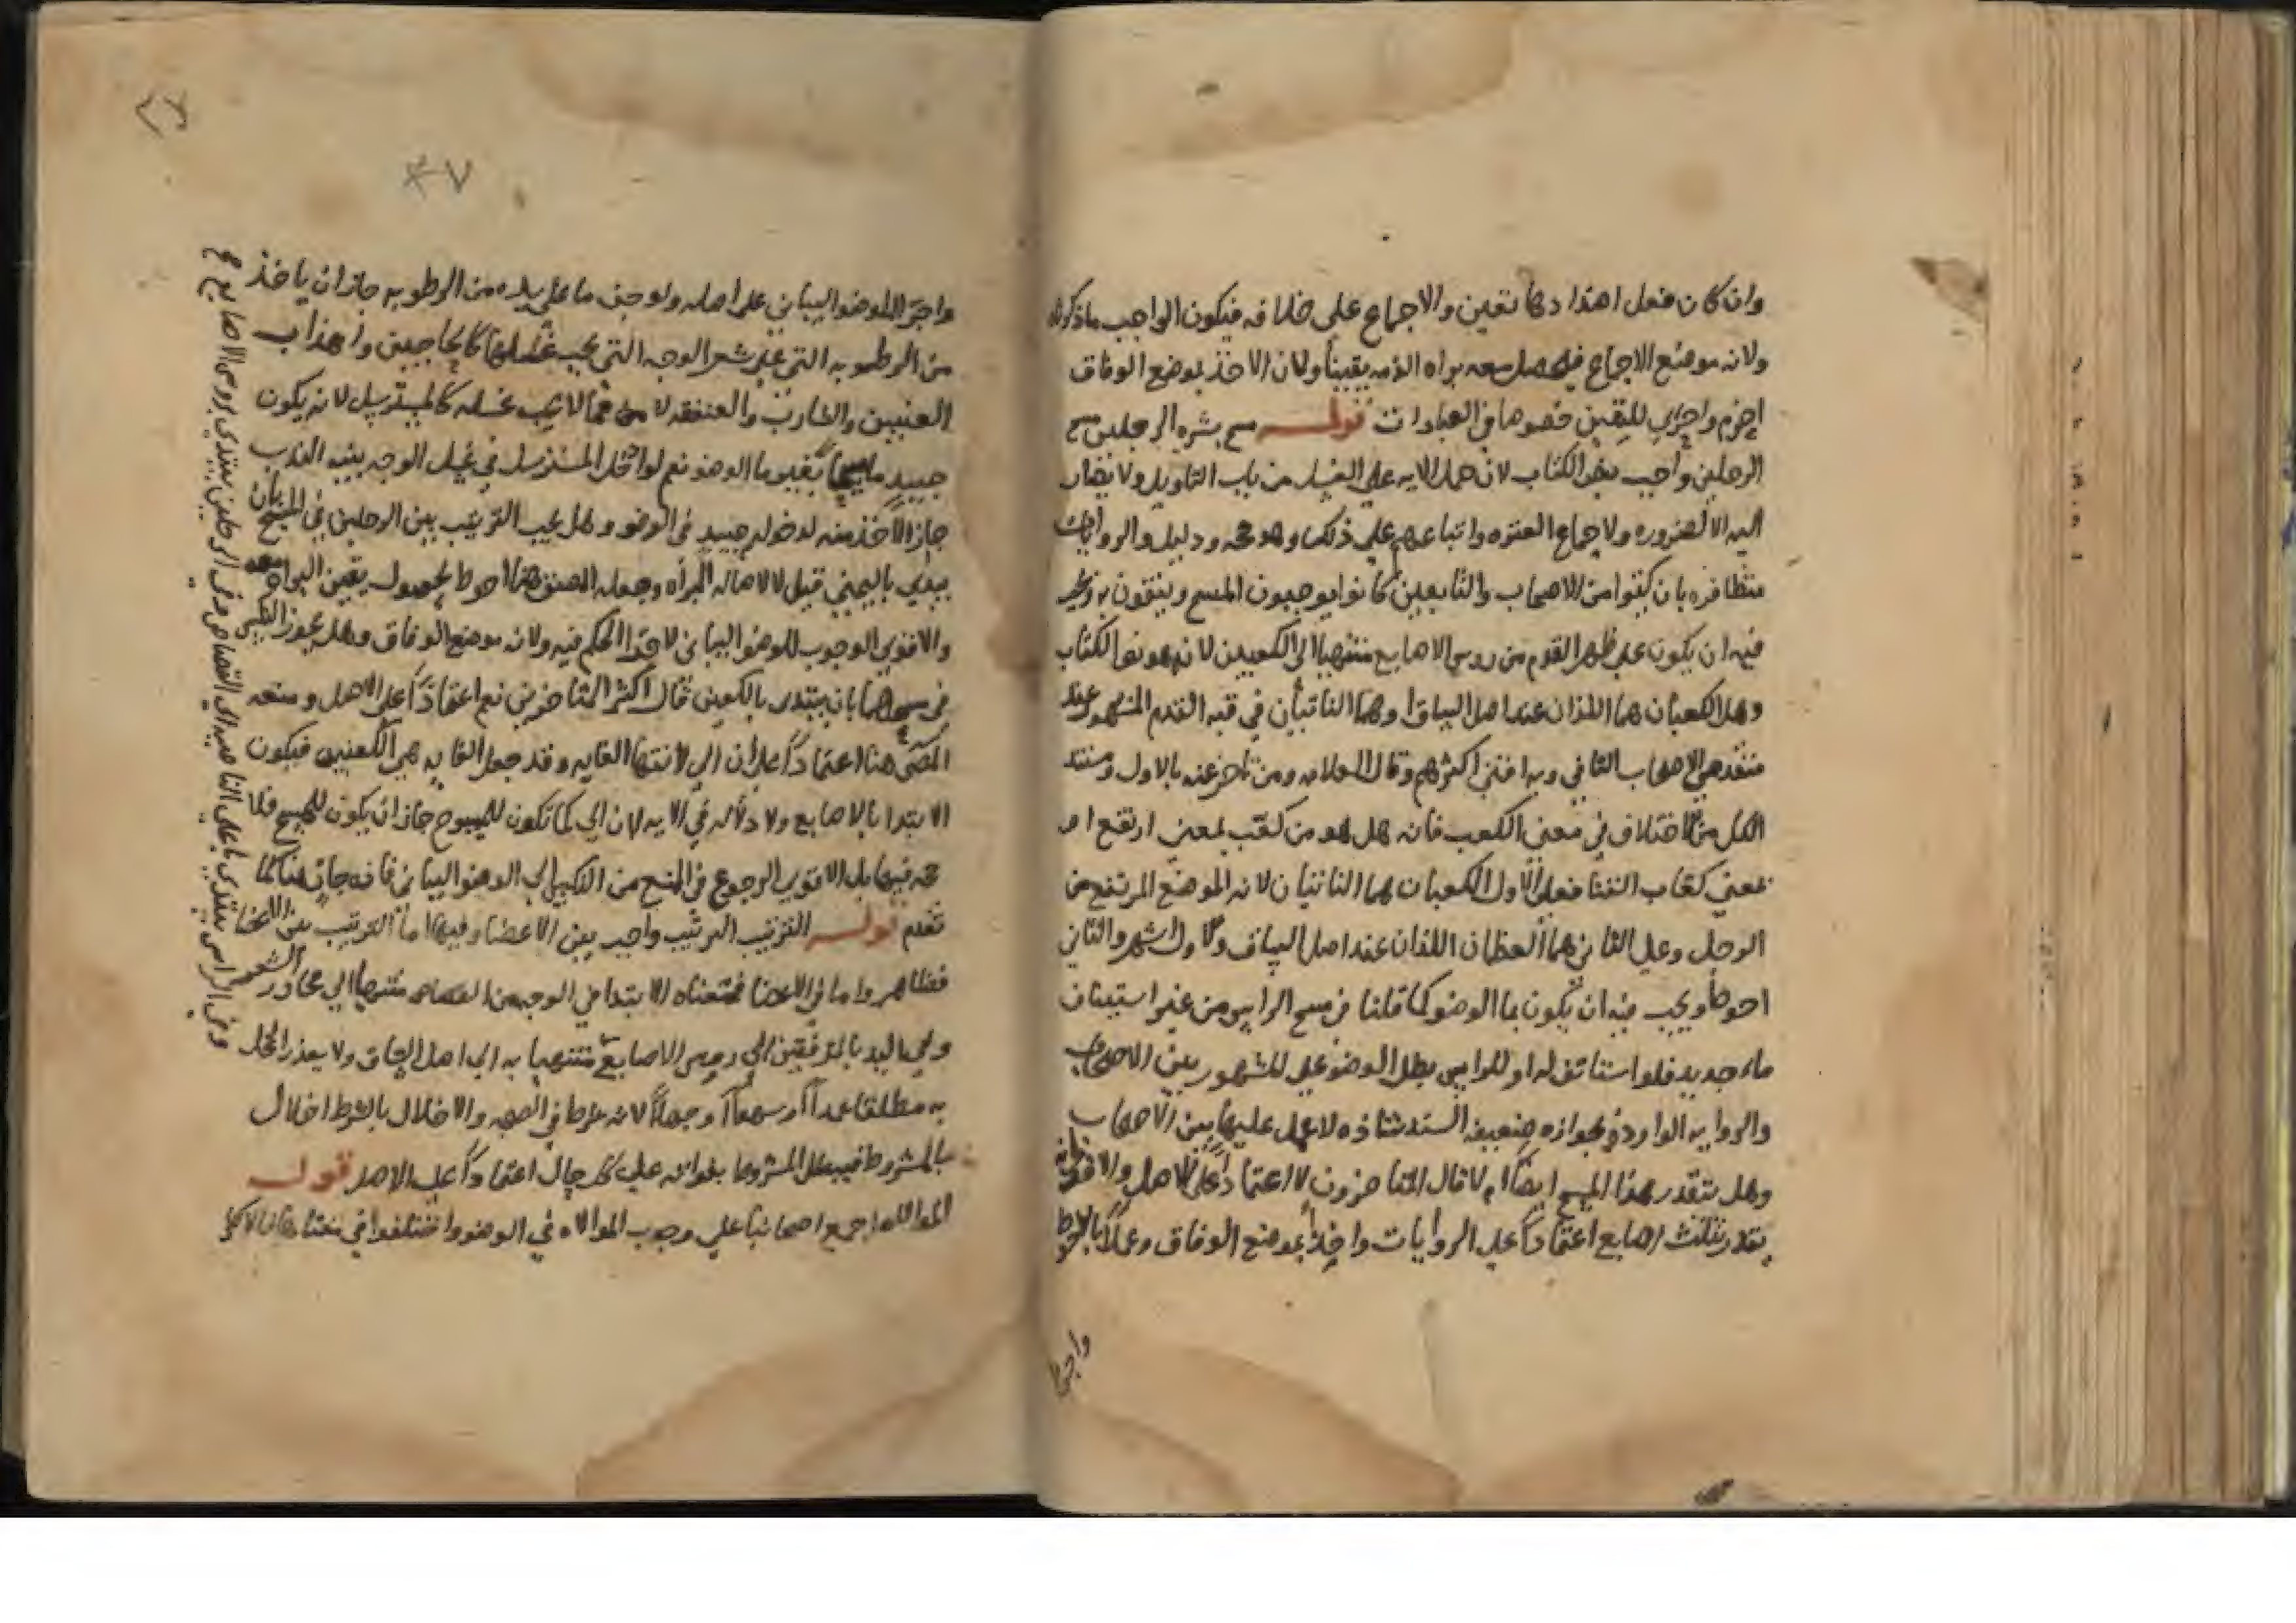 وان كان فعل اهذا دها تعين والاجماع على خلافه فيكون الواجب ما ذكرناه
ولانه موضع الاجماع فيحصل معه براه الذمه يقيناً ولان الاخذ بموضع الوفاق
احزم واحرى لليقين خصوصا في العبادات قوله مسح بشره الرجلين مسح
الرجلين واجب بنص الكتاب لان حمل الايه على الغسل من باب التاويل ولا يضار
اليه الا لضروره ولاجماع العتره واتباعهم على ذلك وهو حجه ودليل والروايات
متظافره بان كثيرا من الاصحاب والتابعين كانوا يوجبون المسح ويفتون به
فيه ان يكون على ظهر القدم من روس الاصابع منتهيا الى الكعبين لانه نص الكتاب
وهل الكعبان هما اللذان عند اصل الساق او هما الناتيان في قبه القدم المشهور عند
متقدمي الاصحاب الثاني وبه افتى اكثرهم وقال العلامه ومن تاخر عنه بالاول ومستند
الكل من الاختلاف في معنى الكعب فانه هل هو من كعب بمعنى ارتفع ام
بمعنى فعلى الاول الكعبان هما الناتيان لانه الموضع المرتفع من
الرجل وعلى الثاني هما العظمان اللذان عند اصل الساق والاول اشهر والثاني
احوط ويجب فيه ان يكون بما الوضو كما قلنا في مسح الراس من غير استيناف
ماء جديد فلو استانف له او للراس بطل الوضو على المشهور بين الاصحاب
والروايه الوارده بجوازه ضعيفه السند شاذه لا عمل عليها بين الاصحاب
وهل يتقدر هذا المسح ايضا ام لا قال المتاخرون لا اعتمادا على الاصل والاقوى انه
يقدر بثلث اصابع اعتماداً على الروايات واخذاً بموضع الوفاق وعملاً بالاحوط
واجرا
٢٧
٤٧
واجرا للوضو البياني على اصله ولو جف ما على يده من الرطوبه جاز ان ياخذ
من الرطوبه التي على شعر الوجه التي يجب غسلها كالحاجبين واهداب
العينين والشارب والعنفقه لا مما لا يجب غسله كالمسترسل لانه يكون
جديد بغير ما الوضو نعم لو ادخل المسترسل في غسل الوجه بنيه الندب
جاز الاخذ منه لدخوله حينيذ في الوضو وهل يجب الترتيب بين الرجلين في المسح بان
يبدي باليمنى قيل لا لاصاله البراه وجعله المصنف هنا احوط لحصول يقين البراه معه
والاقوى الوجوب للوضو البياني لاتحاد الحكم فيه ولانه موضع الوفاق وهل يجوز
في مسحهما بان يبتدى بالكعبين قال اكثر المتاخرين نعم اعتماداً على الاصل ومنعه
المص هنا اعتماداً على ان الى لانتها الغايه وقد جعل الغايه هي الكعبين فيكون
الابتدا بالاصابع ولا دلاله في الايه لان الى كما تكون للمسوح جاز ان يكون للمسح فلا
حجه فيها بل الاقوى الرجوع في المنع من الى الوضو البياني فانه جار هنا كما
تقدم قوله الترتيب الترتيب واجب بين الاعضا وفيها اما الترتيب بين الاعضا
فظاهر واما في الاعضا فمعناه الابتدا في الوجه من القصاص منتهيا الى محادر الشعر
وفي اليد بالمرفقين الى روس الاصابع منتهيا به الى اصل الساق ولا يعذر المخل
به مطلقا عمداً او سهواً او جهلاً لانه شرط في الصحه والاخلال بالشرط اخلال
بالمشروط فيبطل المشروط بفواته على كل حال اعتماداً على الاصل قوله
الموالاه اجمع اصحابنا على وجوب الموالاه في الوضو واختلفوا في معناها فالاكثر
وفي الراس يبتدى باعلى الناصيه الى القصاص وفي الرجلين يبتدى بروس الاصابع صح